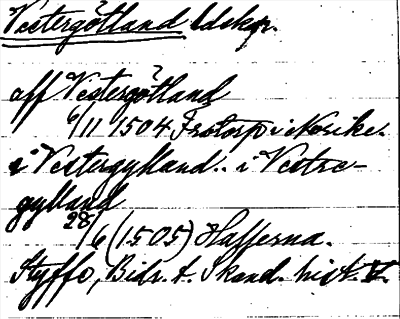 Vestergötland ldskp.
aff Vestergötland
6/11 1504 Frotorp i Nerike.
i Vestergylland. i Vestre-
gylland
28/6 (1505) Hafferna.
Styffe, Bidr. t. Skand. hist. V.